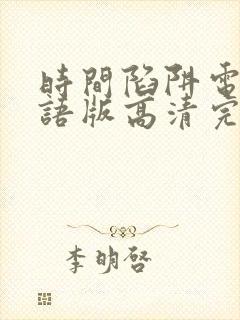 時間陷阱電
語版高清完
李明啓